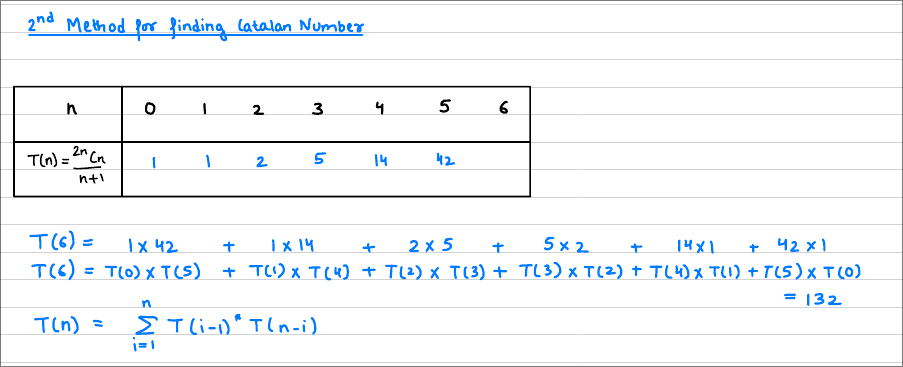 2nd Method for finding Catalan Number
n 0 1 2 3 4 5 6
T(n) = 2nCn / n+1 1 1 2 5 14 42
T(6) = 1 x 42 + 1 x 14 + 2 x 5 + 5 x 2 + 14 x 1 + 42 x 1
T(6) = T(0) x T(5) + T(1) x T(4) + T(2) x T(3) + T(3) x T(2) + T(4) x T(1) + T(5) x T(0)
= 132
T(n) = n Σ i=1 T(i-1) * T(n-i)